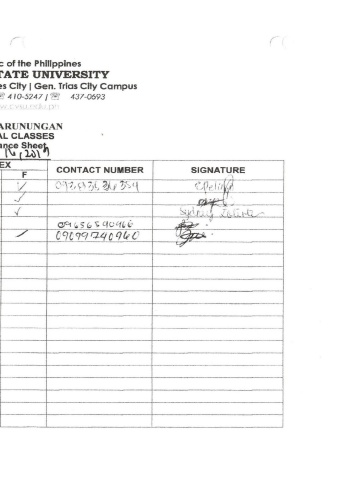 c of the Philippines
TATE UNIVERSITY
es City | Gen. Trias City Campus
☏ 410-5247 / ☏ 437-0693
www.cvsu.edu.ph
ARUNUNGAN
AL CLASSES
ance Sheet
, 2019
EX
F CONTACT NUMBER SIGNATURE
✓
✓
✓ Sydney
09656590966
✓ 09099740960